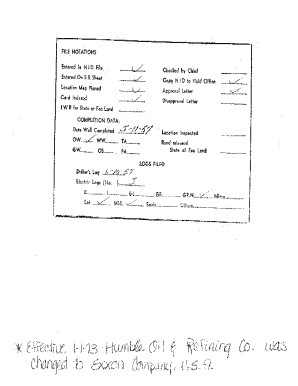 FILE NOTATIONS
Entered in N I D File ✓ Checked by Chief
Entered On S R Sheet ✓ Copy N I D to Field Office ✓
Location Map Pinned ✓ Approval Letter ✓
Card Indexed ✓ Disapproval Letter
I W R for State or Fee Land
COMPLETION DATA:
Date Well Completed 5-11-57 Location Inspected
OW ✓ WW TA Bond released
GW OS PA State of Fee Land
LOGS FILED
Driller's Log
Electric Logs (No. )
E I E-I GR GR-N ✓ Micro
Lat ✓ Mi-L ✓ Sonic Others
* Effective 1-1-73 Humble Oil & Refining Co. was
changed to Exxon Company, U.S.A.